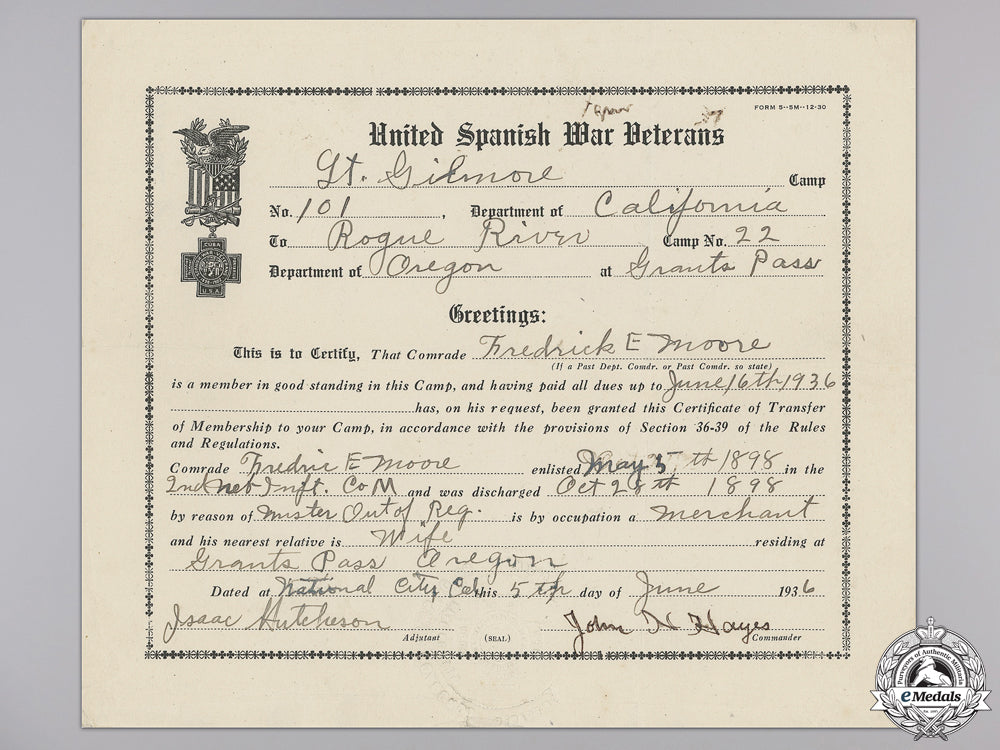 FORM 5--5M--12-30
United Spanish War Veterans
Lt. Gilmore Camp
No. 101, Department of California
To Rogue River Camp No. 22
Department of Oregon at Grants Pass
CUBA
U.S.A.
Greetings:
This is to Certify, That Comrade Fredrick E Moore
(If a Past Dept. Comdr. or Past Comdr. so state)
is a member in good standing in this Camp, and having paid all dues up to June 16th 1936
has, on his request, been granted this Certificate of Transfer
of Membership to your Camp, in accordance with the provisions of Section 36-39 of the Rules
and Regulations.
Comrade Fredric E Moore enlisted May 5th 1898 in the
2nd Neb Inft. Co M and was discharged Oct 28th 1898
by reason of Muster Out of Reg. is by occupation a Merchant
and his nearest relative is Wife residing at
Grants Pass Oregon
Dated at National City, Cal this 5th day of June 1936
Isaac Hutcheson John N Hayes
Adjutant (SEAL) Commander
Purveyors of Authentic Militaria
eMedals